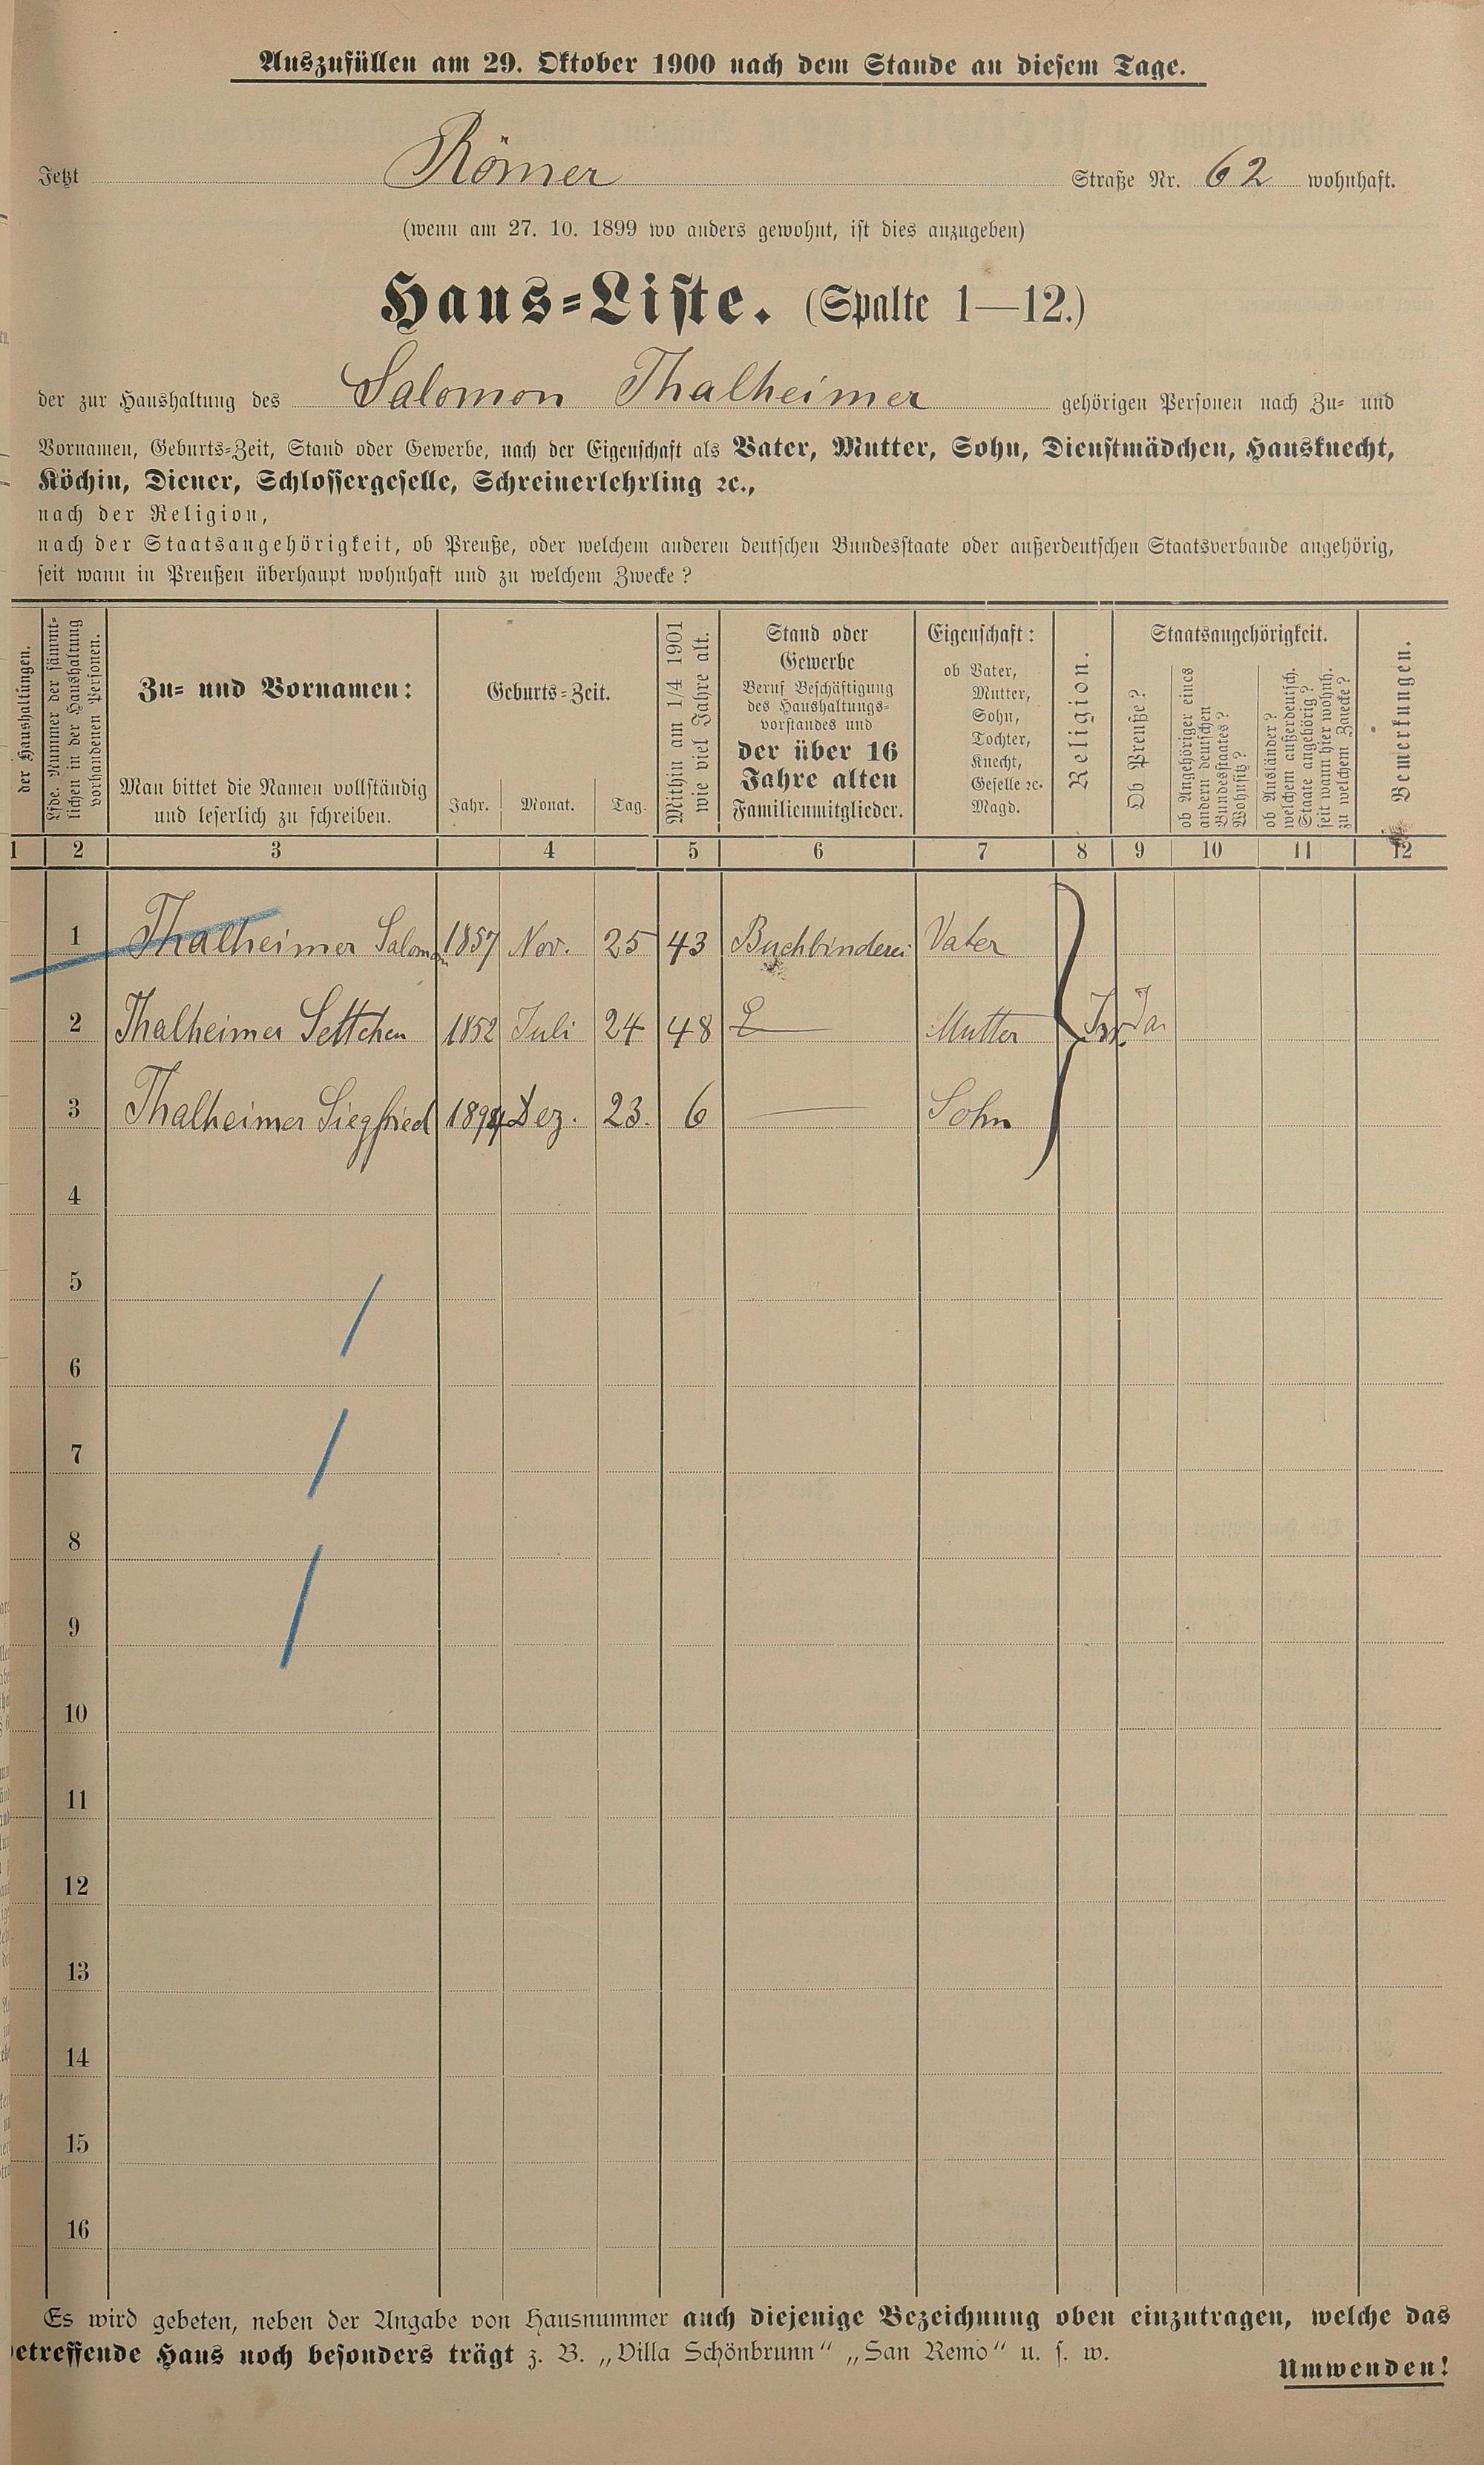 Auszufüllen am 29. Oktober 1900 nach dem Stande an diesem Tage.
Jetzt Römer Straße Nr. 62 wohnhaft.
(wenn am 27. 10. 1899 wo anders gewohnt, ist dies anzugeben)
Haus-Liste. (Spalte 1—12.)
der zur Haushaltung des Salomon Thalheimer gehörigen Personen nach Zu- und
Vornamen, Geburts-Zeit, Stand oder Gewerbe, nach der Eigenschaft als Vater, Mutter, Sohn, Dienstmädchen, Hausknecht,
Köchin, Diener, Schlossergeselle, Schreinerlehrling ꝛc.,
nach der Religion,
nach der Staatsangehörigkeit, ob Preuße, oder welchem anderen deutschen Bundesstaate oder außerdeutschen Staatsverbande angehörig,
seit wann in Preußen überhaupt wohnhaft und zu welchem Zwecke?
der Haushaltungen.
Lfde. Nummer der sämmt-
lichen in der Haushaltung
vorhandenen Personen.
Zu- und Vornamen:
Man bittet die Namen vollständig
und leserlich zu schreiben.
Geburts-Zeit.
Jahr. Monat. Tag.
Mithin am 1/4 1901
wie viel Jahre alt.
Stand oder
Gewerbe
Beruf Beschäftigung
des Haushaltungs-
vorstandes und
der über 16
Jahre alten
Familienmitglieder.
Eigenschaft:
ob Vater,
Mutter,
Sohn,
Tochter,
Knecht,
Geselle ꝛc.
Magd.
Religion.
Staatsangehörigkeit.
Ob Preuße?
ob Angehöriger eines
andern deutschen
Bundesstaates?
Wohnsitz?
ob Ausländer?
welchem außerdeutsch.
Staate angehörig?
seit wann hier wohnh.
zu welchem Zwecke?
Bemerkungen.
1 2 3 4 5 6 7 8 9 10 11 12
1 Thalheimer Salomon 1857 Nov. 25 43 Buchbinderei Vater
2 Thalheimer Settchen 1852 Juli 24 48 — Mutter Isr. Ja
3 Thalheimer Siegfried 1894 Dez. 23. 6 — Sohn
4
5
6
7
8
9
10
11
12
13
14
15
16
Es wird gebeten, neben der Angabe von Hausnummer auch diejenige Bezeichnung oben einzutragen, welche das
etreffende Haus noch besonders trägt z. B. „Villa Schönbrunn“ „San Remo“ u. s. w.
Umwenden!